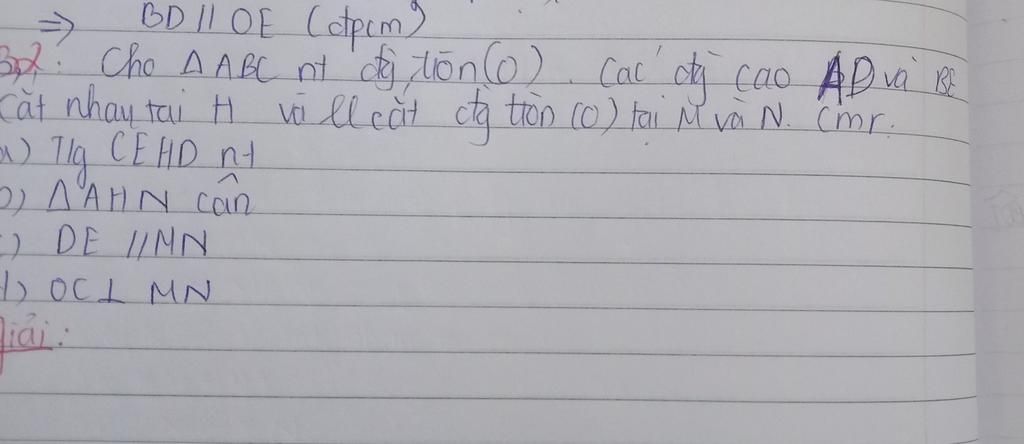 ⇒ BD // OE (đpcm)
B2: Cho Δ ABC nt đg tròn (O). Các đg cao AD và BE
cắt nhau tại H và ll cắt đg tròn (O) tại M và N. Cmr.
a) T/g CEHD nt
b) Δ AHN cân
c) DE // MN
d) OC ⊥ MN
giải: